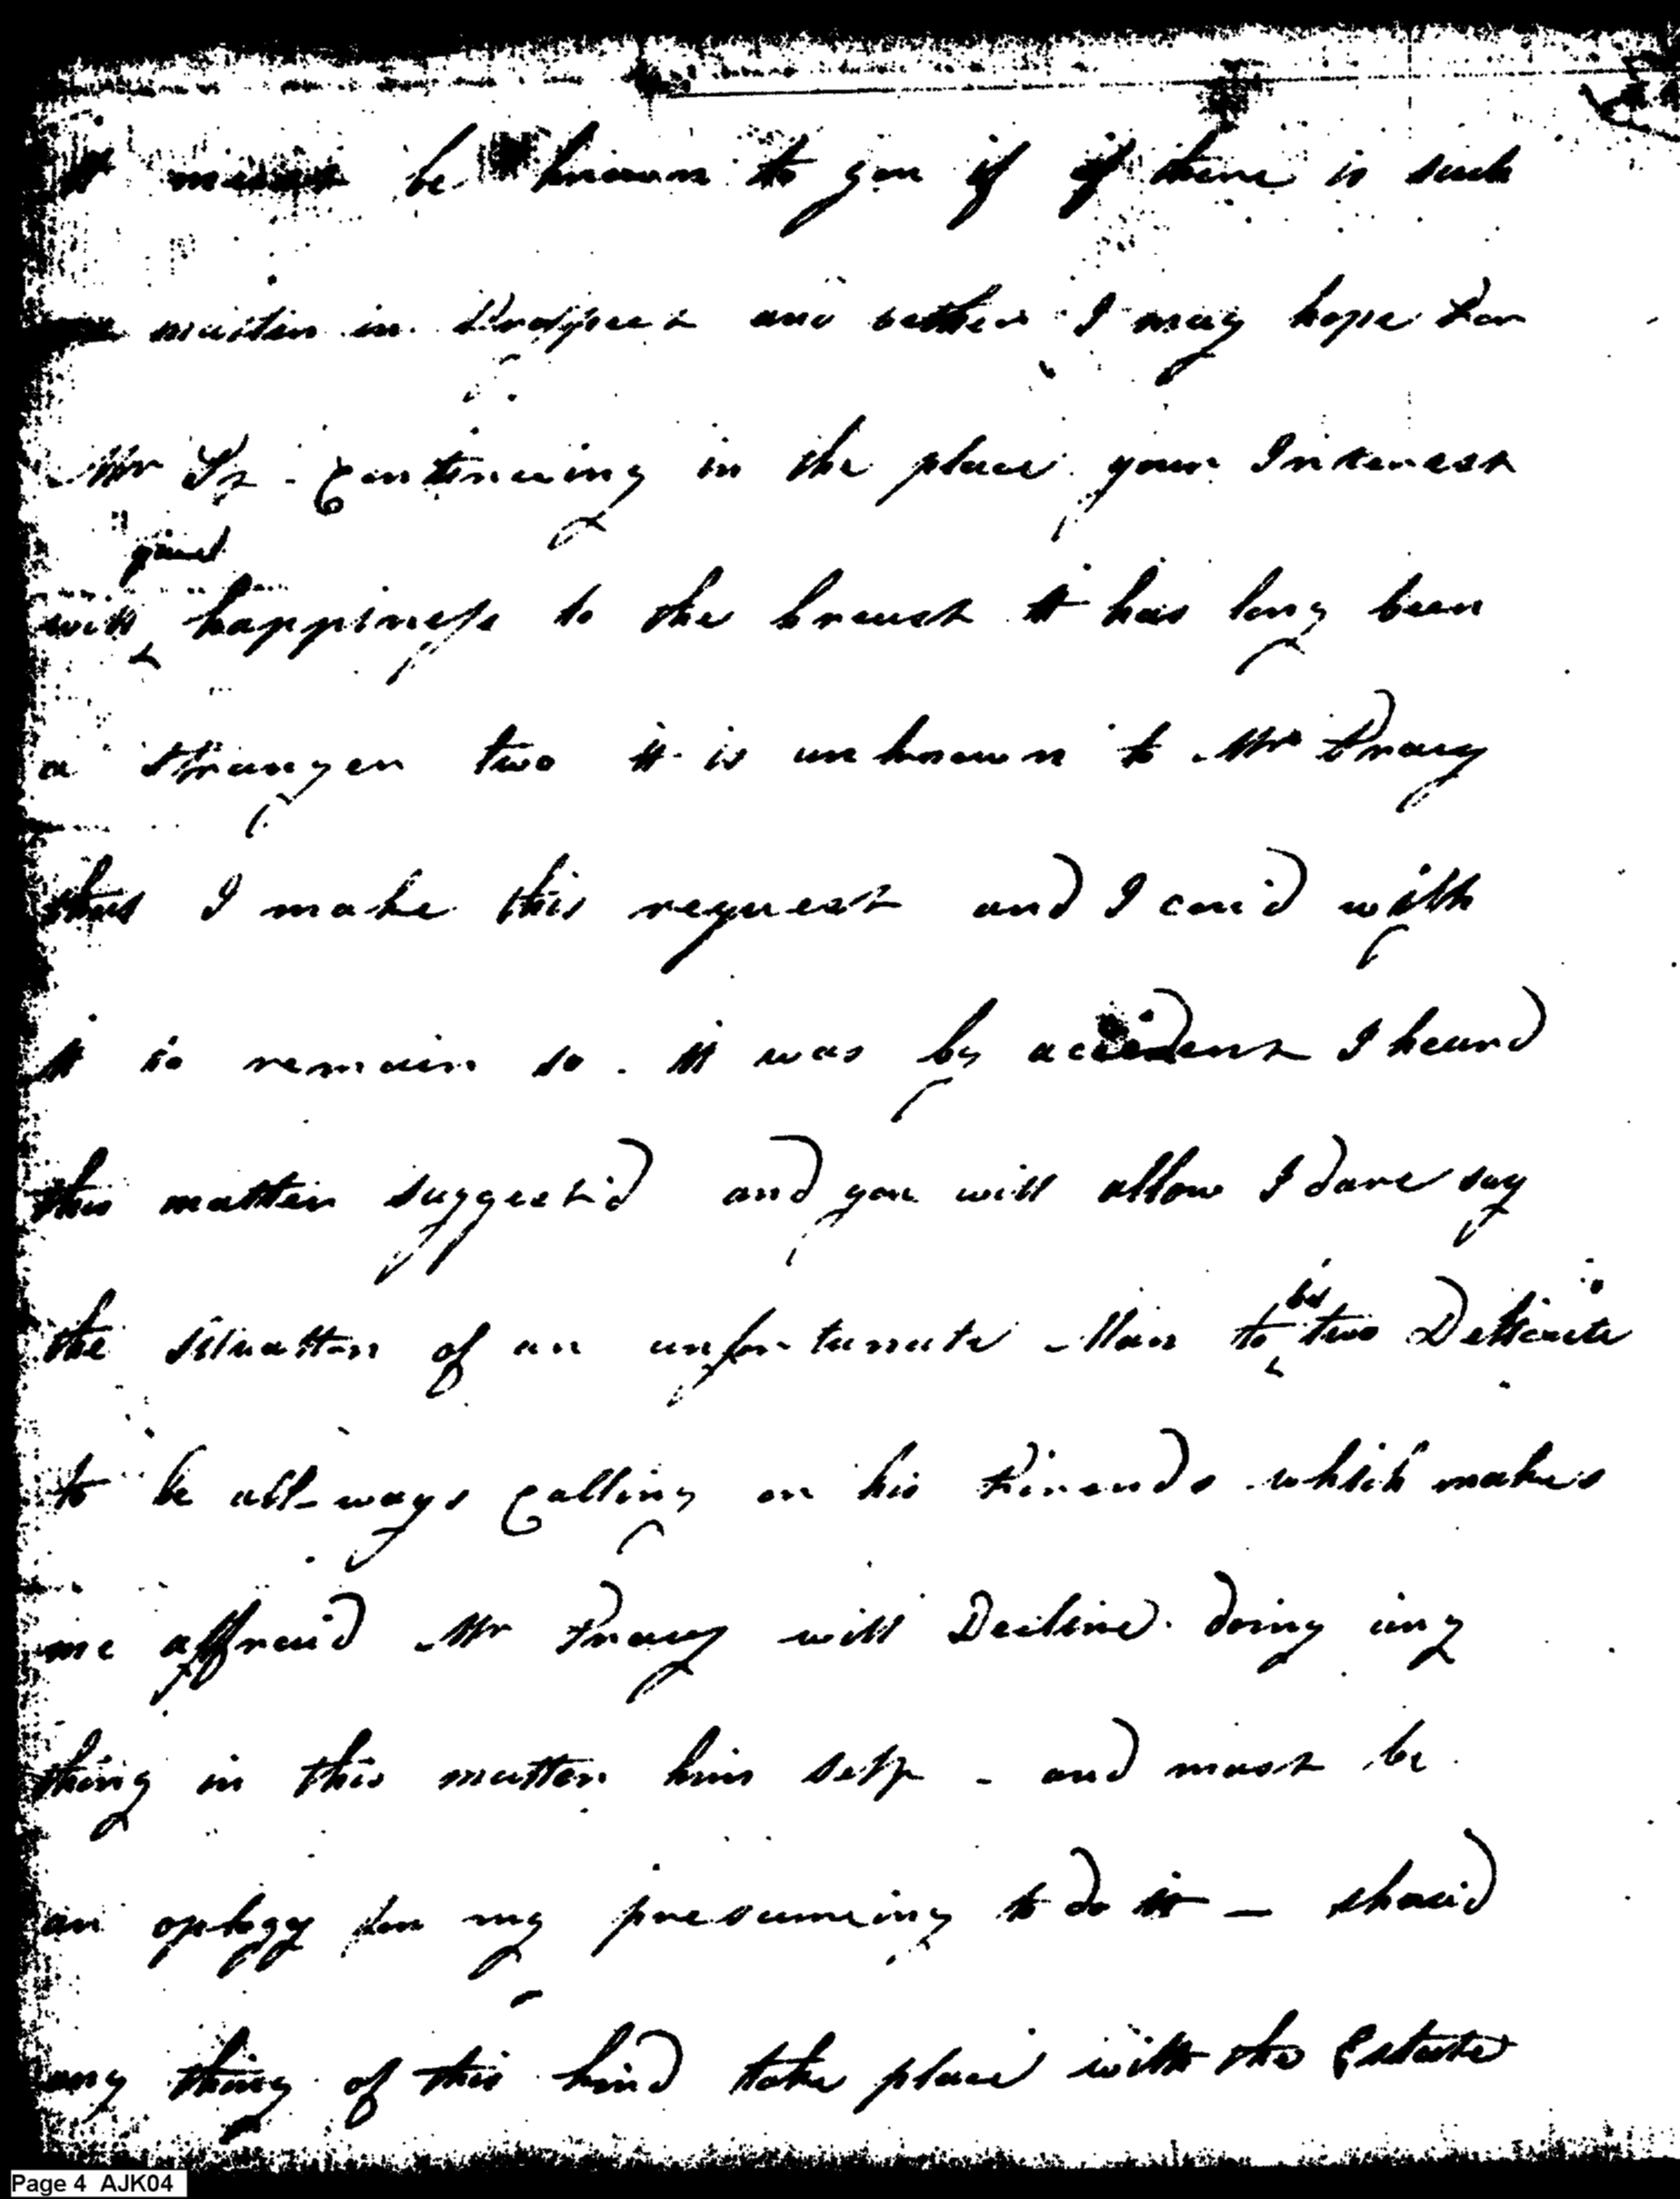 it must be known to you if if there is such
matter in Prospect and wether I may hope for
Mr Ts. Continuing in the place your Interest
give
will happiness to the breast it has long been
a Stranger two it is unknown to Mr Tracy
that I make this request and I cou'd wish
it to remain so. it was by accident I heard
this matter suggest'd and you will allow I dare say
be
the Situation of an unfortunate Man to two Dellicate
to be all-ways Calling on his Friends which makes
me affraid Mr Tracy will Decline doing any
thing in this matter him self - and must be
an oplogy for my presumeing to do it — shou'd
any thing of this kind take place with the Estate
Page 4 AJK04